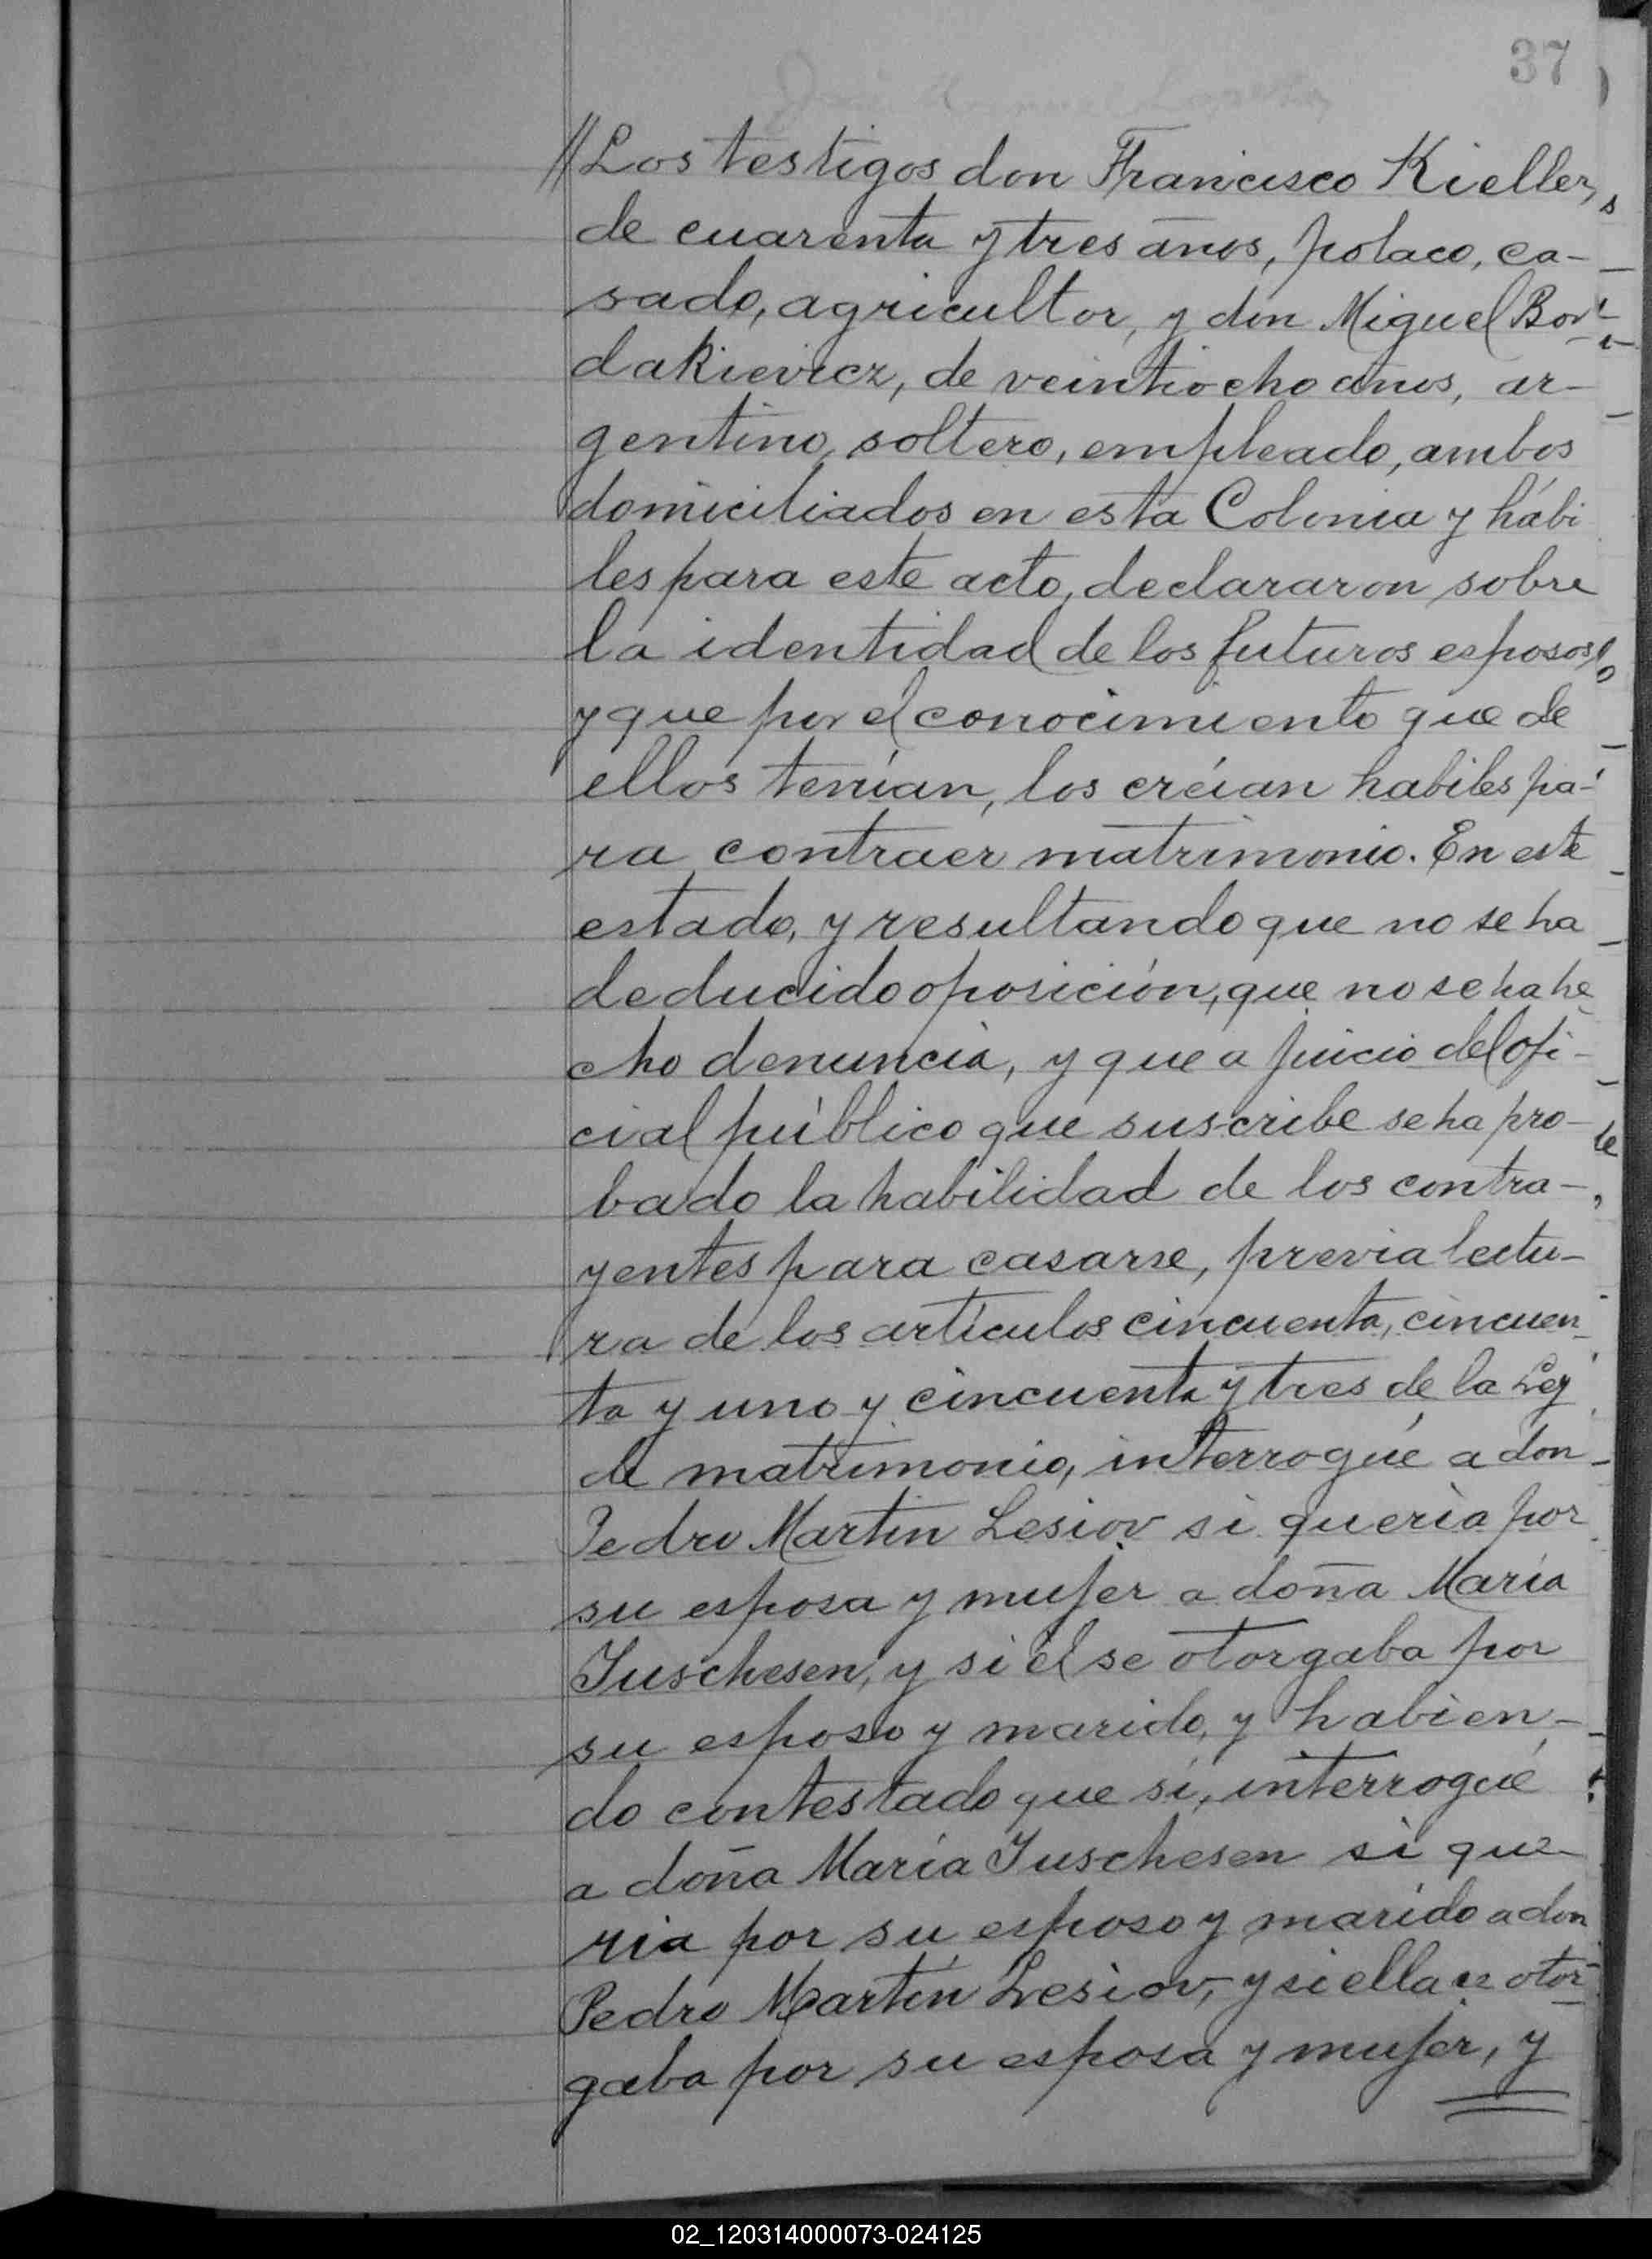 37
//Los testigos don Francisco Kieller,
de cuarenta y tres años, polaco, ca-
sado, agricultor, y don Miguel Bor-
dakievicz, de veintiocho años, ar-
gentino, soltero, empleado, ambos
domiciliados en esta Colonia y hábi
les para este acto, declararon sobre
la identidad de los futuros esposos
y que por el conocimiento que de
ellos tenían, los creían habiles pa-
ra contraer matrimonio. En este
estado, y resultando que no se ha
deducido oposición, que no se ha he
cho denuncia, y que a juicio del ofi-
cial público que suscribe se ha pro-
bado la habilidad de los contra-
yentes para casarse, previa lectu-
ra de los artículos cincuenta, cincuen
ta y uno y cincuenta y tres de la Ley
de matrimonio, interrogué a don
Pedro Martín Lesiov si quería por
su esposa y mujer a doña María
Juschesen, y si él se otorgaba por
su esposo y marido, y habien-
do contestado que sí, interrogué
a doña María Juschesen si que-
ria por su esposo y marido a don
Pedro Martín Lesiov, y si ella se otor-
gaba por su esposa y mujer, y
02_120314000073-024125